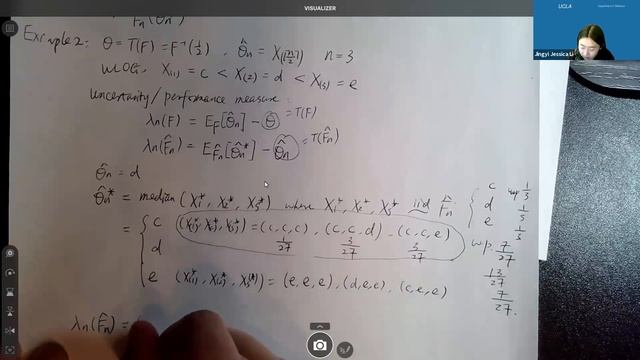 VISUALIZER
UCLA
Jingyi Jessica Li
F̂n(θ̂n)
Example 2: θ = T(F) = F⁻¹(½), θ̂n = X(⌈n/2⌉) n = 3
WLOG, X(1) = c < X(2) = d < X(3) = e
Uncertainty/performance measure:
λn(F) = E_F[θ̂n] − θ = T(F)
λn(F̂n) = E_F̂n[θ̂n*] − θ̂n = T(F̂n)
θ̂n = d
θ̂n* = median (X1*, X2*, X3*) where X1*, X2*, X3* iid F̂n { c wp 1/3
d 1/3
e 1/3
= { c (X(1)*, X(2)*, X(3)*) = (c,c,c), (c,c,d), (c,c,e) wp. 7/27
1/27 3/27 3/27
d 13/27
e (X(1)*, X(2)*, X(3)*) = (e,e,e), (d,e,e), (c,e,e) 7/27.
λn(F̂n) =